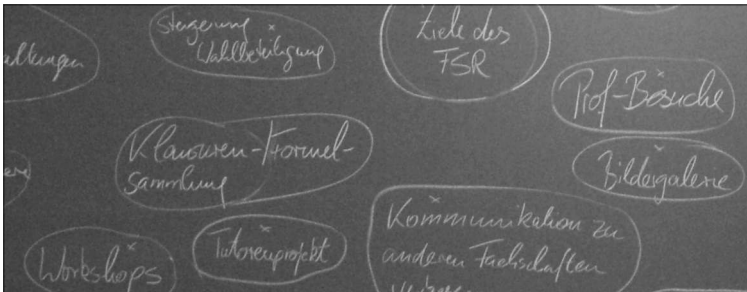 Steigerung
Wahlbeteiligung
Ziele des
FSR
altungen
Prof-Besuche
Klausuren-Formel-
sammlung
Bildergalerie
Workshops
Tutorenprojekt
Kommunikation zu
anderen Fachschaften